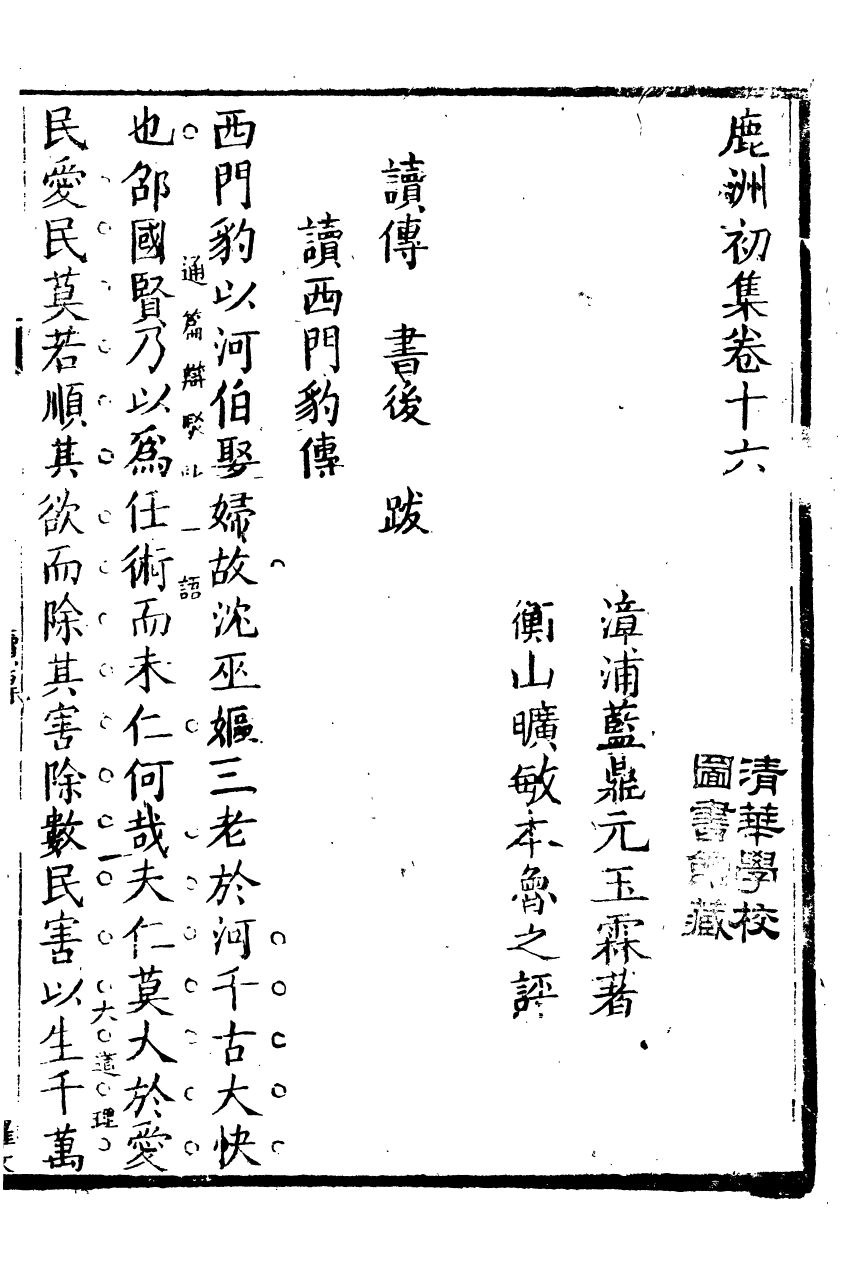 鹿洲初集卷十六
清華學校
圖書館藏
漳浦藍鼎元玉霖著
衡山曠敏本魯之評
讀傳　書後　跋
讀西門豹傳
西門豹以河伯娶婦故沈巫嫗三老於河千古大快
通篇辯駁此一語
也邵國賢乃以爲任術而未仁何哉夫仁莫大於愛
大道理
民愛民莫若順其欲而除其害除數民害以生千萬